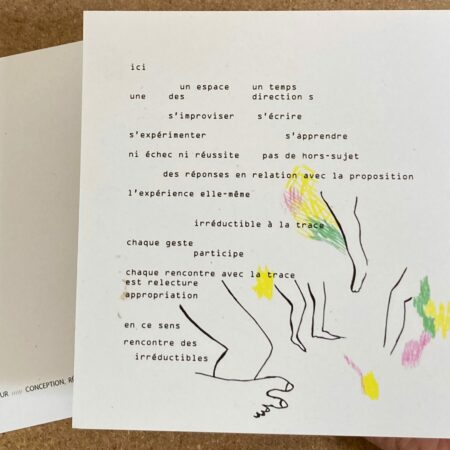 ici
un espace un temps
une des direction s
s'improviser s'écrire
s'expérimenter s'apprendre
ni échec ni réussite pas de hors-sujet
des réponses en relation avec la proposition
l'expérience elle-même
irréductible à la trace
chaque geste
participe
chaque rencontre avec la trace
est relecture
appropriation
en ce sens
rencontre des
irréductibles
UR //// CONCEPTION, RÉ